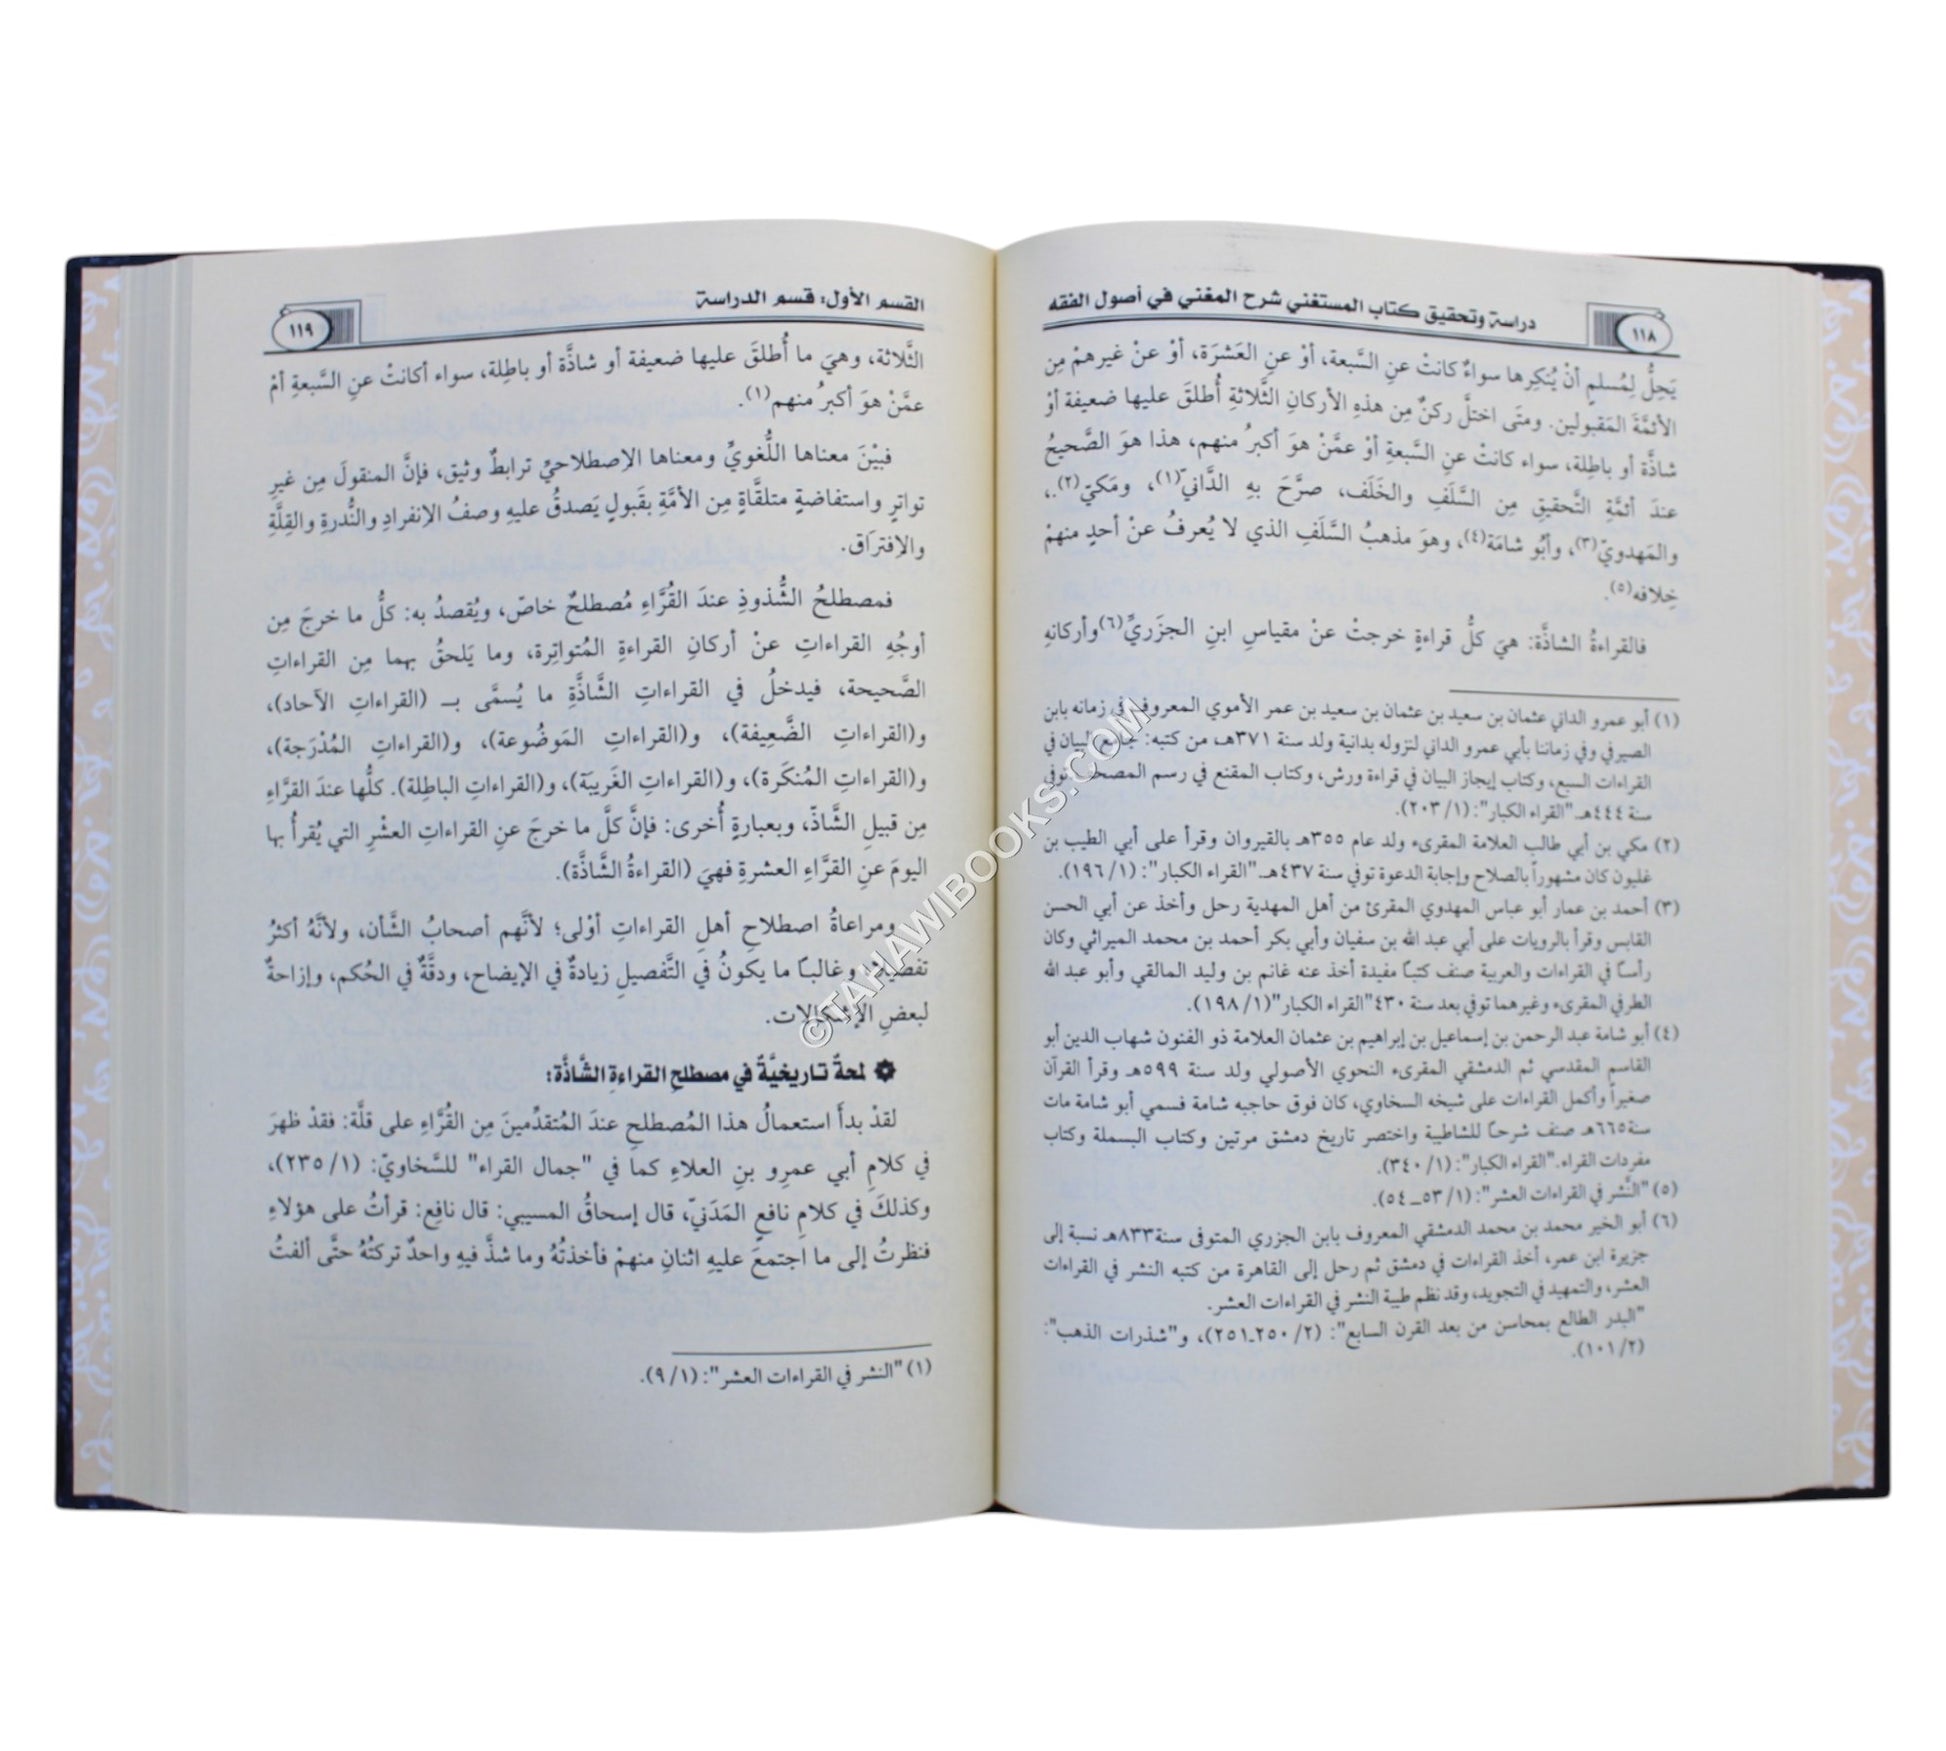 ١١٨
دراسة وتحقيق كتاب المستغني شرح المغني في أصول الفقه
يَحِلُّ لِمُسلمٍ أنْ يُنكِرها سواءٌ كانتْ عنِ السَّبعة، أوْ عنِ العَشرَة، أوْ عنْ غيرهمْ مِن
الأئمَّةَ المَقبولين. ومتَى اختلَّ ركنٌ مِن هذهِ الأركانِ الثَّلاثةِ أُطلقَ عليها ضعيفة أوْ
شاذَّة أو باطِلة، سواء كانتْ عنِ السَّبعةِ أوْ عمَّنْ هوَ أكبرُ منهم، هذا هوَ الصَّحيحُ
عندَ أئمَّةِ التَّحقيقِ مِن السَّلَفِ والخَلَف، صرَّحَ بهِ الدَّانيّ(١)، ومَكيّ(٢).،
والمَهدويّ(٣)، وأبُو شامَة(٤)، وهوَ مذهبُ السَّلَفِ الذي لا يُعرفُ عنْ أحدٍ منهمْ
خِلافه(٥).
فالقراءةُ الشاذَّة: هيَ كلُّ قراءةٍ خرجتْ عنْ مقياسِ ابنِ الجزَريِّ(٦)وأركانهِ
(١) أبو عمرو الداني عثمان بن سعيد بن عثمان بن سعيد بن عمر الأموي المعروف في زمانه بابن
الصيرفي وفي زماننا بأبي عمرو الداني لنزوله بدانية ولد سنة ٣٧١هـ، من كتبه: جامع البيان في
القراءات السبع، وكتاب إيجاز البيان في قراءة ورش، وكتاب المقنع في رسم المصحف توفي
سنة ٤٤٤هـ."القراء الكبار": (٢٠٣/١).
(٢) مكي بن أبي طالب العلامة المقرىء ولد عام ٣٥٥هـ بالقيروان وقرأ على أبي الطيب بن
غليون كان مشهوراً بالصلاح وإجابة الدعوة توفي سنة ٤٣٧هـ."القراء الكبار": (١٩٦/١).
(٣) أحمد بن عمار أبو عباس المهدوي المقرئ من أهل المهدية رحل وأخذ عن أبي الحسن
القابس وقرأ بالرويات على أبي عبد الله بن سفيان وأبي بكر أحمد بن محمد الميراثي وكان
رأسا في القراءات والعربية صنف كتبا مفيدة أخذ عنه غانم بن وليد المالقي وأبو عبد الله
الطرفي المقرىء وغيرهما توفي بعد سنة ٤٣٠"القراء الكبار"(١٩٨/١).
(٤) أبو شامة عبد الرحمن بن إسماعيل بن إبراهيم بن عثمان العلامة ذو الفنون شهاب الدين أبو
القاسم المقدسي ثم الدمشقي المقرىء النحوي الأصولي ولد سنة ٥٩٩هـ وقرأ القرآن
صغيراً وأكمل القراءات على شيخه السخاوي، كان فوق حاجبه شامة فسمي أبو شامة مات
سنة٦٦٥هـ صنف شرحا للشاطبية واختصر تاريخ دمشق مرتين وكتاب البسملة وكتاب
مفردات القراء."القراء الكبار": (٣٤٠/١).
(٥) "النَّشر في القراءات العشر": (٥٣/١ــ٥٤).
(٦) أبو الخير محمد بن محمد الدمشقي المعروف بابن الجزري المتوفى سنة٨٣٣هـ نسبة إلى
جزيرة ابن عمر، أخذ القراءات في دمشق ثم رحل إلى القاهرة من كتبه النشر في القراءات
العشر، والتمهيد في التجويد، وقد نظم طيبة النشر في القراءات العشر.
"البدر الطالع بمحاسن من بعد القرن السابع": (٢٥٠/٢ـ٢٥١)، و"شذرات الذهب":
(١٠١/٢).
القسم الأول: قسم الدراسة
١١٩
الثَّلاثة، وهيَ ما أُطلقَ عليها ضعيفة أو شاذَّة أو باطِلة، سواء أكانتْ عنِ السَّبعةِ أمْ
عمَّنْ هوَ أكبرُ منهم(١).
فبيْنَ معناها اللُّغويِّ ومعناها الاِصطلاحيِّ ترابطٌ وثيق، فإنَّ المنقولَ مِن غيرِ
تواترٍ واستفاضةٍ متلقَّاةٍ مِن الأمَّةِ بقَبولٍ يَصدقُ عليهِ وصفُ الاِنفرادِ والنُّدرةِ والقِلَّةِ
والاِفتِرَاق.
فمصطلحُ الشُّذوذِ عندَ القُرَّاءِ مُصطلحٌ خاصّ، ويُقصدُ به: كلُّ ما خرجَ مِن
أوجُهِ القراءاتِ عنْ أركانِ القراءةِ المُتواتِرة، وما يَلحقُ بهما مِن القراءاتِ
الصَّحيحة، فيدخلُ في القراءاتِ الشَّاذَّةِ ما يُسمَّى بـ (القراءاتِ الآحاد)،
و(القراءاتِ الضَّعِيفة)، و(القراءاتِ المَوضُوعة)، و(القراءاتِ المُدْرَجة)،
و(القراءاتِ المُنكَرة)، و(القراءاتِ الغَريبَة)، و(القراءاتِ الباطِلة). كلُّها عندَ القرَّاءِ
مِن قبيلِ الشَّاذّ، وبعبارةٍ أُخرى: فإنَّ كلَّ ما خرجَ عنِ القراءاتِ العشْرِ التي يُقرأُ بها
اليومَ عنِ القرَّاءِ العشرةِ فهيَ (القراءةُ الشَّاذَّة).
ومراعاةُ اصطلاحِ أهلِ القراءاتِ أوْلى؛ لأنَّهم أصحابُ الشَّأن، ولأنَّهُ أكثرُ
تفصيلا، وغالبـا ما يكونُ في التَّفصيلِ زيادةٌ في الإيضاح، ودقَّةٌ في الحُكم، وإزاحةٌ
لبعضِ الإشكالات.
لمحةٌ تاريخيَّةٌ في مصطلحِ القراءةِ الشَّاذَّة:
لقدْ بدأَ استعمالُ هذا المُصطلحِ عندَ المُتقدِّمينَ مِن القُرَّاءِ على قلَّة: فقدْ ظهرَ
في كلامِ أبي عمرِو بنِ العلاءِ كما في "جمال القراء" للسَّخاويّ: (٢٣٥/١)،
وكذلكَ في كلامِ نافعٍ المَدَنيّ، قال إسحاقُ المسيبي: قال نافِع: قرأتُ على هؤلاءِ
فنظرتُ إلى ما اجتمعَ عليهِ اثنانِ منهمْ فأخذتُهُ وما شذَّ فيهِ واحدٌ تركتُهُ حتَّى ألفتُ
(١) "النشر في القراءات العشر": (٩/١).
©TAHAWIBOOKS.COM